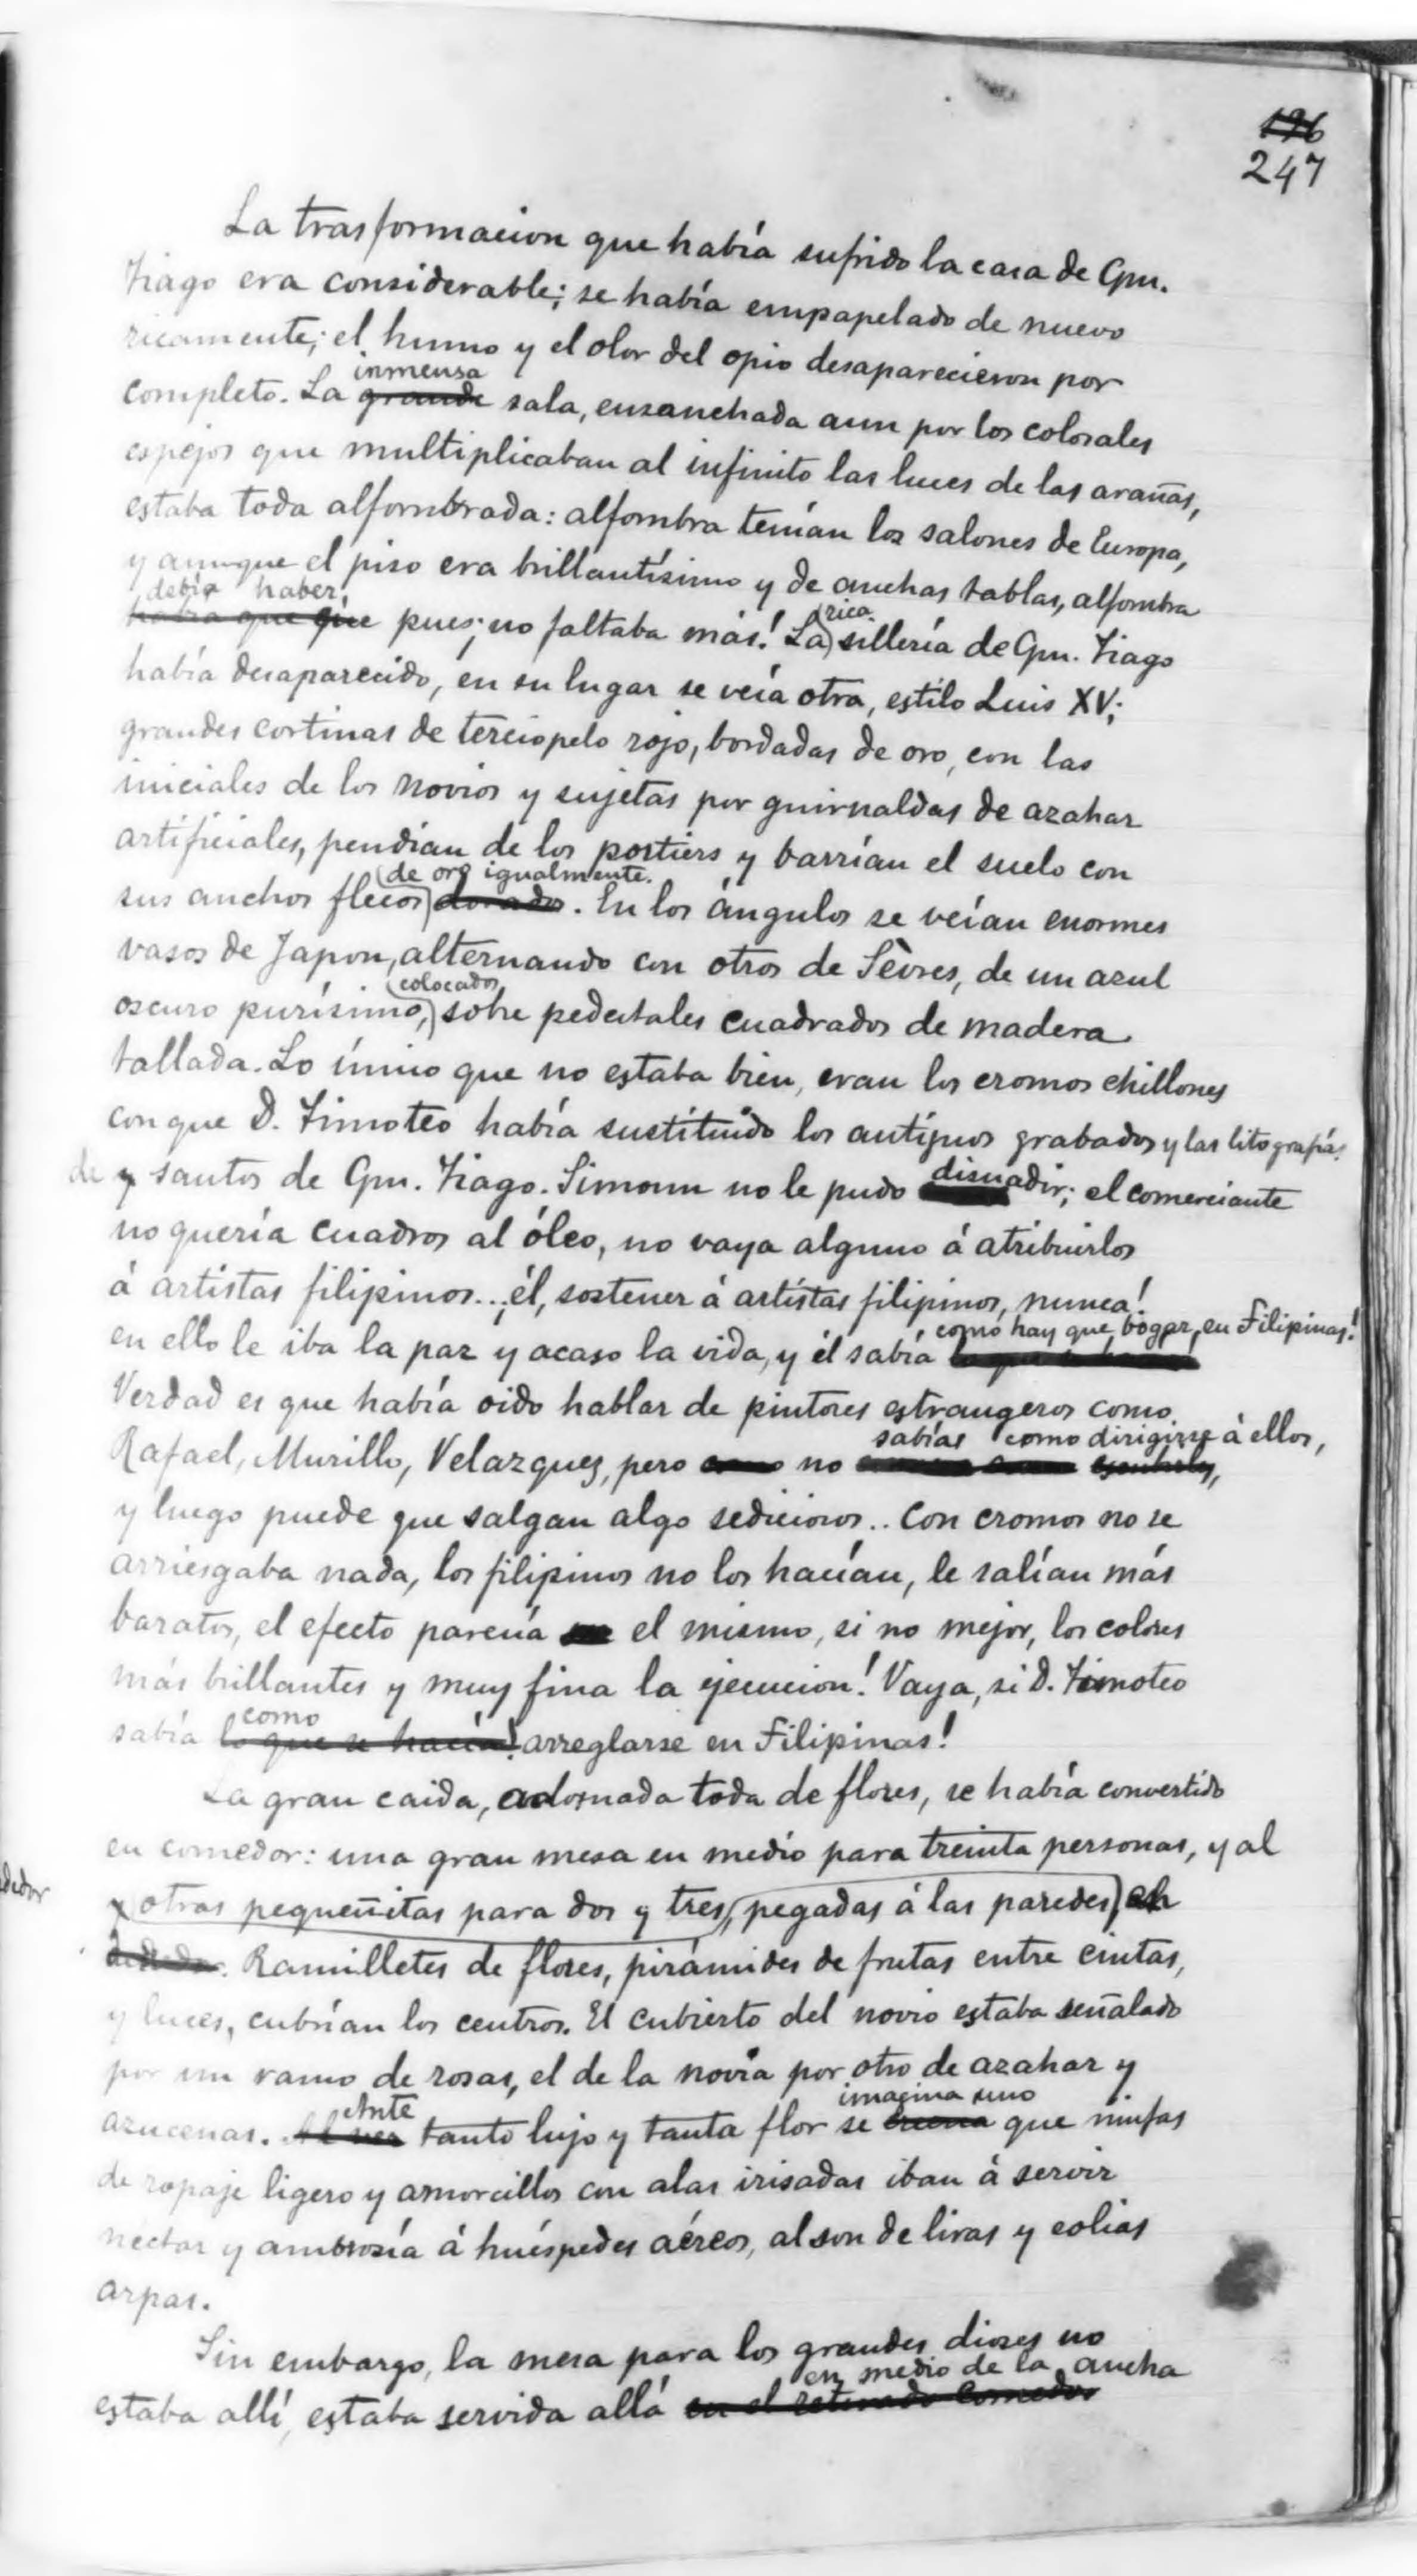 196
247
La trasformacion que había sufrido la casa de Cpn.
Tiago era considerable; se había empapelado de nuevo
ricamente; el humo y el olor del opio desaparecieron por
inmensa
completo. La grande sala, ensanchada aun por los colosales
espejos que multiplicaban al infinito las luces de las arañas,
estaba toda alfombrada: alfombra tenían los salones de Europa,
y aunque el piso era brillantísimo y de anchas tablas, alfombra
debía haber,
había que pues; no faltaba más! La sillería de Cpn. Tiago
rica
había desaparecido, en su lugar se veía otra, estilo Luis XV;
grandes cortinas de terciopelo rojo, bordadas de oro, con las
iniciales de los novios y sujetas por guirnaldas de azahar
artificiales, pendían de los portiers y barrían el suelo con
de oro igualmente.
sus anchos flecos dorados. En los ángulos se veían enormes
vasos de Japon, alternando con otros de Sèvres, de un azul
colocados
oscuro purísimo, sobre pedestales cuadrados de madera
tallada. Lo único que no estaba bien, eran los cromos chillones
con que D. Timoteo había sustituido los antiguos grabados y las litografías
de y santos de Cpn. Tiago. Simoun no le pudo disuadir; el comerciante
no quería cuadros al óleo, no vaya alguno á atribuirlos
á artistas filipinos... él, sostener á artistas filipinos, nunca!
como hay que bogar en Filipinas!
en ello le iba la paz y acaso la vida, y él sabía
Verdad es que había oido hablar de pintores estrangeros como
sabías como dirigirse á ellos,
Rafael, Murillo, Velazquez, pero no
y luego puede que salgan algo sediciosos.. Con cromos no se
arriesgaba nada, los filipinos no los hacían, le salían más
baratos, el efecto parecía el mismo, si no mejor, los colores
más brillantes y muy fina la ejecucion! Vaya, si D. Timoteo
como
sabía lo que se hacía! arreglarse en Filipinas!
La gran caida, adornada toda de flores, se había convertido
en comedor: una gran mesa en medio para treinta personas, y al
dedor
y otras pequeñitas para dos y tres, pegadas á las paredes,
Ramilletes de flores, pirámides de frutas entre cintas,
y luces, cubrían los centros. El cubierto del novio estaba señalado
por un ramo de rosas, el de la novia por otro de azahar y
Ante imagina uno
azucenas. Al ver tanto lujo y tanta flor se que ninfas
de ropaje ligero y amorcillos con alas irisadas iban á servir
néctar y ambrosía á huéspedes aéreos, al son de liras y eolias
arpas.
Sin embargo, la mesa para los grandes dioses no
en medio de la ancha
estaba allí, estaba servida allá en el retirado comedor